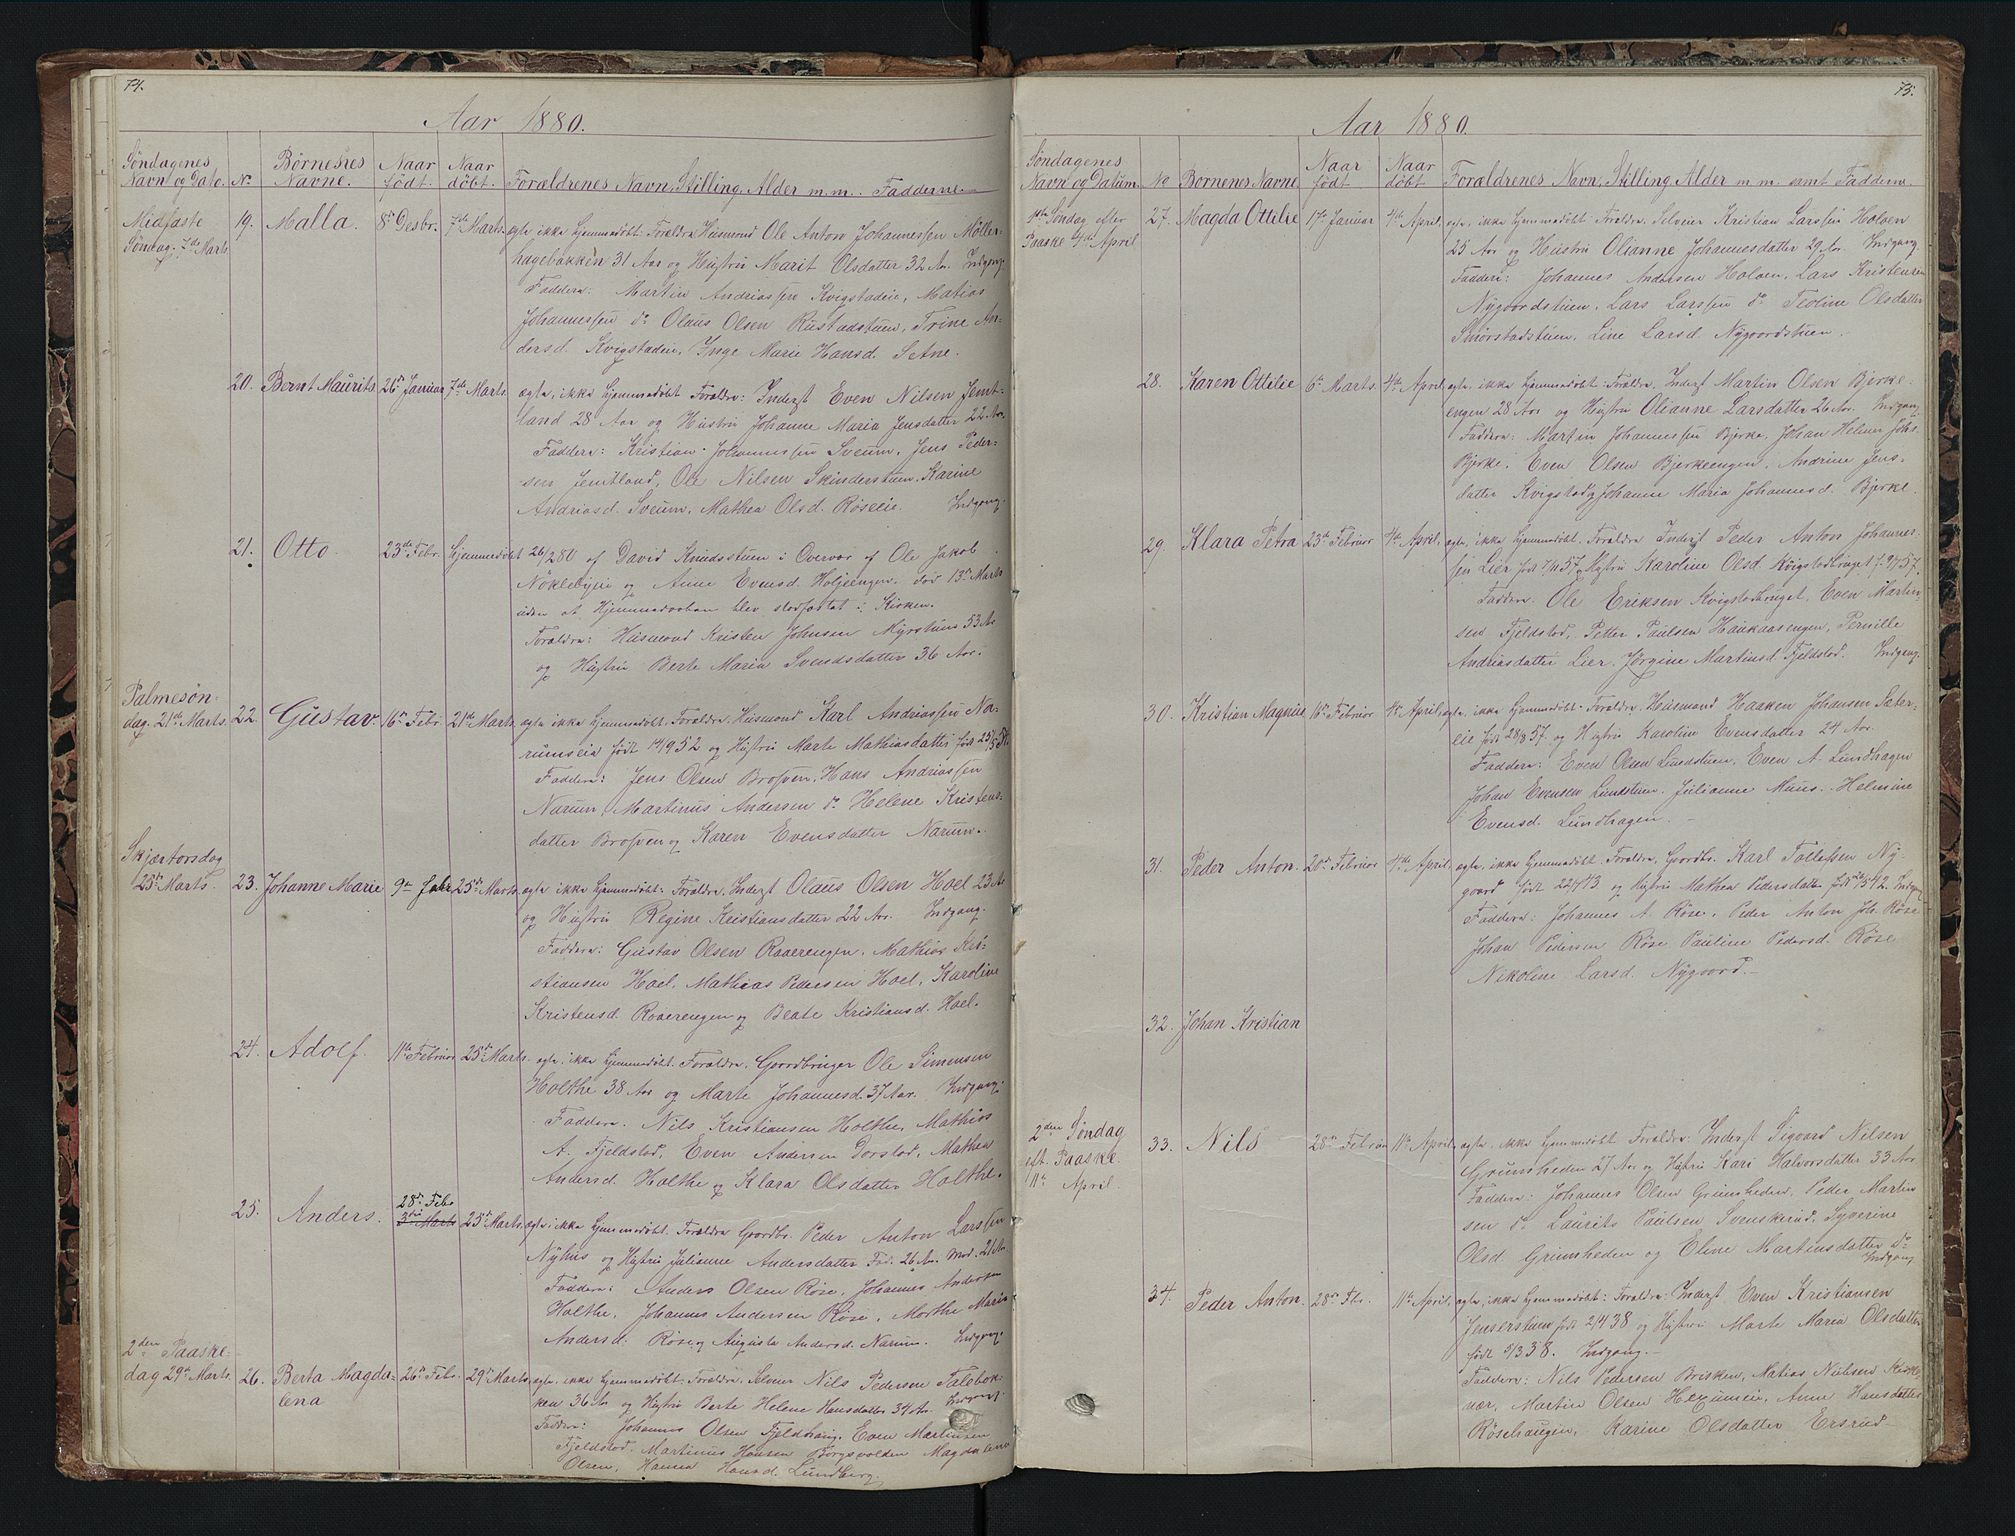 74.
Aar 1880.
Søndagenes Navn og Dato. No. Børnenes Navne. Naar født. Naar døbt. Forældrenes Navn, Stilling, Alder m.m. Fadderne
Midfaste Søndag. 7de Marts.
19. Malla. 8de Desbr. 7de Marts. ægte, ikke hjemmedøbt. Forældre Husmand Ole Anton Johannessen Møller-
hagebakken 31 Aar og Hustru Marit Olsdatter 32 Ar. Indgang.
Faddere: Martin Andriassen Kvigstadeie, Matias
Johannessen do Olaus Olsen Rustadstuen, Trine An-
dersd. Kvigstadeie, Inge Marie Hansd. Setne.
20. Bernt Maurits 26de Januar 7de Marts. ægte, ikke hjemmedøbt Forældre: Inderst Even Nilsen Jemt-
land 28 Aar og Hustru Johanne Maria Jensdatter 22 Ar.
Faddere: Kristian Johannessen Sveum, Jens Peder-
sen Jemtland, Ole Nilsen Skinderstuen, Karine
Andriasd. Sveum, Mathea Olsd. Røseie. Indgang.
21. Otto. 23de Febr. Hjemmedøbt 26/2 80 af David Knudsstuen i Overvær af Ole Jakob
Nøklebyeie og Anne Evensd. Holjeengen. død 13de Marts
uden at Hjemmedaaben blev stadfæstet i Kirken.
Forældre: Husmand Kristen Johnsen Myrstuen 53 Ar
og Hustru Berte Maria Svendsdatter 36 Aar.
Palmesøn-
dag. 21de Marts.
22. Gustav. 16de Febr 21de Marts. ægte ikke hjemmedøbt. Forældre, Husmand Karl Andriassen Na-
rumseie født 14/9 52 og Hustru Marte Mathiasdatter født 25/8
Faddere: Jens Olsen Broßveen, Hans Andriassen
Narum, Martinus Andersen do Helene Kristens-
datter Broßveen og Karen Evensdatter Narum.
Skjærtorsdag
25de Marts.
23. Johanne Marie 9de Febr 25de Marts. ægte ikke hjemmedøbt: Forældre, Inderst Olaus Olsen Hoel 23 Ar
og Hustru Regine Kristiansdatter 22 Ar. Indgang.
Faddere: Gustav Olsen Raaerengen, Mathias Kri-
stiansen Hoel, Mathias Pedersen Hoel, Karoline
Kristensd. Raaerengen og Beate Kristiansd. Hoel.
24. Adolf. 11te Februar 25de Marts. ægte, ikke hjemmedøbt. Forældre, Gaardbruger Ole Simensen
Holthe 38 Aar og Marte Johannesd. 37 Aar. Indgang.
Faddere. Nils Kristiansen Holthe, Mathias
A. Fjeldstad, Even Andersen Dorstad, Mathea
Andersd. Holthe og Klara Olsdatter Holthe.
25. Anders. 28de Febr 3die Marts 25de Marts. ægte, ikke hjemmedøbt. Forældre Gaardbr. Peder Anton Larssen
Nyhus og Hustru Julianne Andersdatter Fad. 26 Ar. Mod. 21 Ar.
Faddere: Anders Olsen Røse, Johannes Andersen
Holthe, Johannes Andersen Røse, Marthe Maria
Andersd. Røse og Augusta Andersd. Narum. Indgang.
2den Paaske-
dag 29de Marts.
26. Berta Magda-
lena 26de Febr. 29de Marts. ægte, ikke hjemmedøbt: Forældre, Selveier Nils Pedersen Talebak-
ken 36 Ar og Hustru Berte Helene Hansdatter 34 Ar. Indgang.
Faddere: Johannes Olsen Fjeldhaug, Even Martinsen
Fjeldstad. Martinus Hansen Borgsvolden Magdalena
Olsen, Hanna Hansd. Lundberg.
75.
Aar 1880.
Søndagenes Navn og Datum. No Børnenes Navne Naar født Naar døbt Forældrenes Navn, Stilling Alder m m. samt Faddere.
1ste Søndag efter
Paaske 4de April
27. Magda Ottilie 17de Januar 4de April. ægte, ikke hjemmedøbt. Forældre. Selveier Kristian Larssen Holven
25 Aar og Hustru Olianne Johannesdatter 29 Ar. Indgang.
Faddere: Johannes Andersen Holven, Lars Kristensen
Nygaardstuen, Lars Larssen do Teoline Olsdatter
Smørstadstuen, Line Larsd. Nygaardstuen.
28. Karen Ottilie 6te Marts 4de April. ægte, ikke hjemmedøbt: Forældre, Inderst Martin Olsen Bjerke-
engen 28 Aar og Hustru Olianne Larsdatter 26 Ar. Indgang.
Faddere: Martin Johannessen Bjerke, Johan Helmer Johs.
Bjerke, Even Olsen Bjerkeengen, Andrine Jens-
datter Kvigstad og Johanne Maria Johannesd. Bjerke.
29 Klara Petra 23de Februar 4de April. ægte, ikke hjemmedøbt. Forældre Inderst Peder Anton Johannes-
sen Lier født 7/11 57 og Hustru Karoline Olsd. Kvigstadbruget f. 9/7 57.
Faddere. Ole Eriksen Kvigstadbruget, Even Martin-
sen Fjeldstad, Petter Paulsen Haukaasengen, Pernille
Andriasdatter Lier. Jørgine Martinsd. Fjeldstad. Indgang.
30. Kristian Magnus 16de Februar 4de April. ægte, ikke hjemmedøbt. Forældre, Husmand Haaken Johansen Sater-
eie født 28/8 57. og Hustru Karoline Evensdatter 24 Ar.
Faddere: Even Olsen Lundstuen, Even A. Lundhagen
Johan Evensen Lundstuen. Julianne Muus. Helmine
Evensd. Lundhagen.
31. Peder Anton. 20de Februar 4de April. ægte, ikke hjemmedøbt: Forældre, Gaardbr. Karl Tollefsen Ny-
gaard født 22/4 43 og Hustru Mathea Pedersdatter født 5/5 42. Indgang
Faddere: Johannes A. Røse, Peder Anton Joh. Røse
Johan Pedersen Røse Pauline Pedersd. Røse
Nikoline Larsd. Nygaard.
32. Johan Kristian
2den Søndag
eft. Paaske.
11te April.
33. Nils 28de Februar 11te April. ægte, ikke hjemmedøbt. Forældre. Inderst Sigvard Nilsen
Grimsheden 27 Aar og Hustru Kari Halvorsdatter 33 Aar
Faddere: Johannes Olsen Grimsheden, Peder Martin
sen do Laurits Paulsen Svenskerud, Syverine
Olsd. Grimsheden og Eline Martinsdatter do
Indgang
34. Peder Anton. 28de Febr. 11te April. ægte, ikke hjemmedøbt: Forældre: Inderst Even Kristiansen
Jenserstuen født 2/4 38 og Hustru Marte Maria Olsdatter
født 9/3 38. Indgang.
Faddere: Nils Pedersen Brisken, Matias Nielsen
Martin Olsen Hexumeie, Anne Hansdatter
Røsehaugen, Karine Olsdatter Ersrud